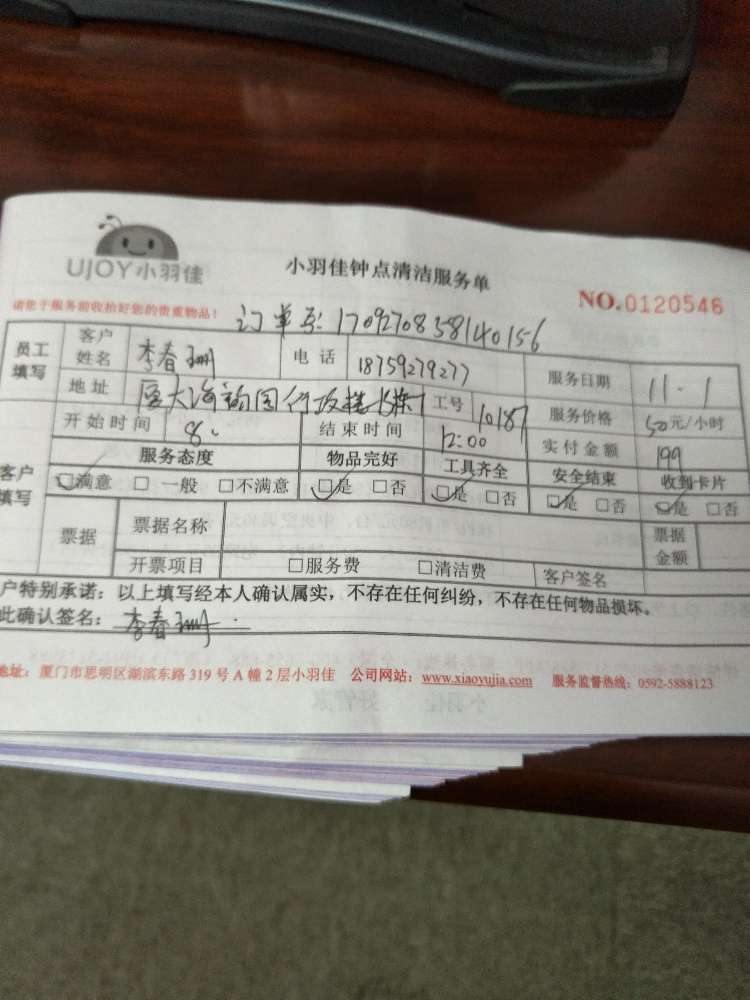 UJOY小羽佳
小羽佳钟点清洁服务单
NO.0120546
请您于服务前收拾好您的贵重物品!
订单号: 17092708358140156
员工填写
客户姓名 李春珊 电话 18759279277 服务日期 11.1
地址 厦大海韵园行政楼 工号 10187 服务价格 50元/小时
开始时间 8. 结束时间 12:00 实付金额 199
客户填写
服务态度 物品完好 工具齐全 安全结束 收到卡片
☑满意 □一般 □不满意 ☑是 □否 ☑是 □否 ☑是 □否 ☑是 □否
票据 票据名称 票据金额
开票项目 □服务费 □清洁费 客户签名
户特别承诺：以上填写经本人确认属实，不存在任何纠纷，不存在任何物品损坏。
此确认签名：李春珊
地址：厦门市思明区湖滨东路 319 号 A 幢 2 层小羽佳 公司网站：www.xiaoyujia.com 服务监督热线：0592-5888123